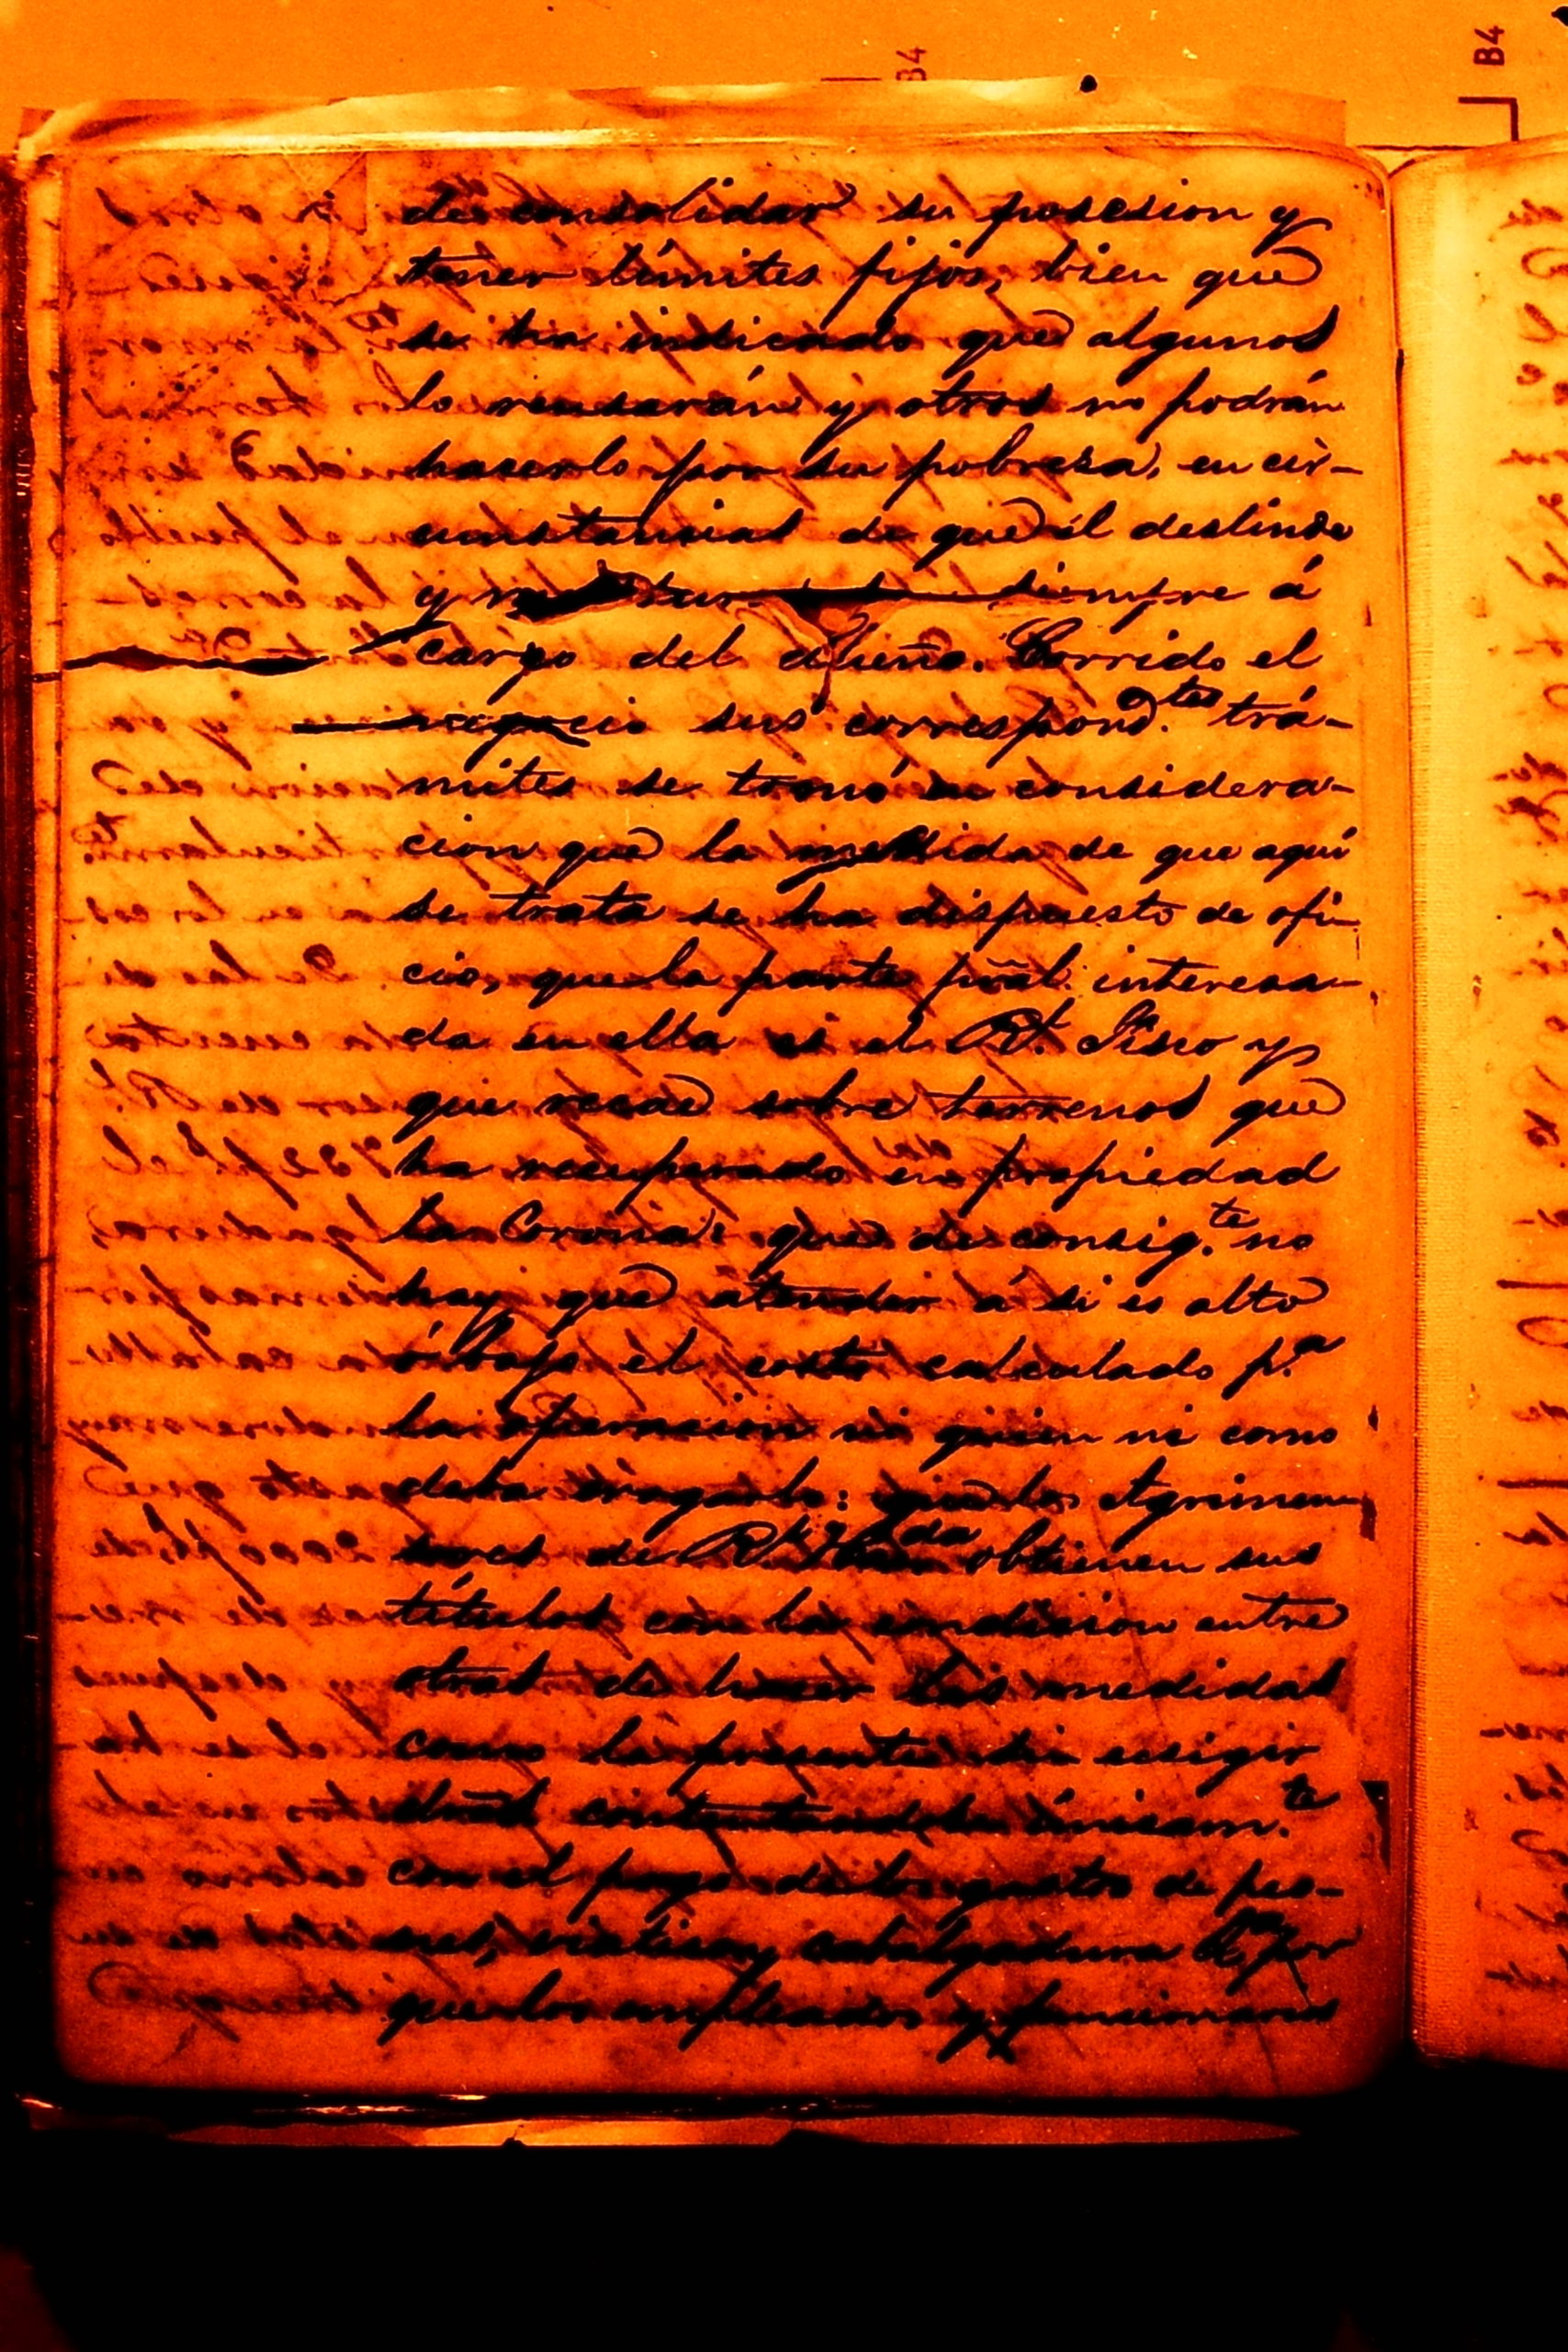 B4
B4
de consolidar su posesion y
tener límites fijos, bien que
se ha indicado que algunos
lo reusarán y otros no podrán
hacerlo por su pobreza, en cir-
cunstancias de que el deslinde
y siempre á
cargo del dueño. Corrido el
negocio sus correspond.tes trá-
mites se tomó en considera-
cion que la medida de que aquí
se trata se ha dispuesto de ofi-
cio, que la parte pñal. interesa-
da en ella es el Rl. Fisco y
que recae sobre terrenos que
ha recuperado en propiedad
la Corona: que de consig.te no
hay que atender á si es alto
ó bajo el costo calculado p.a
la operacion ni quien ni como
deba : que los Agrimen-
sores de Rl. Hda obtienen sus
títulos con la condicion entre
otras de hacer las medidas
como la presente sin exigir
contentandose únicam.te
con el pago de los gastos de peo-
nes, y cabalgadura por
que los empleados y funcionarios